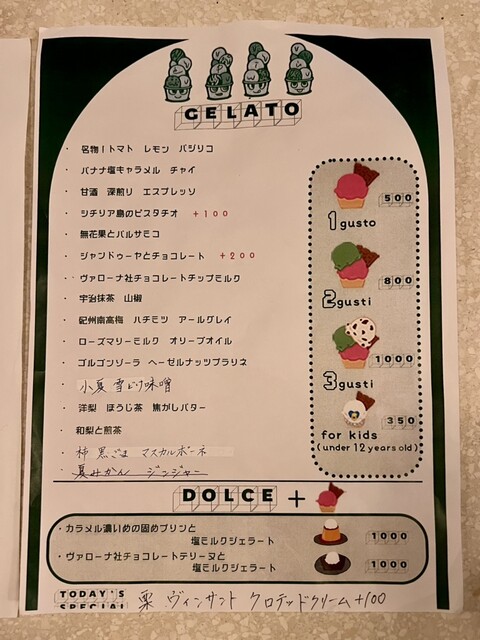 GELATO
・ 名物！トマト レモン バジリコ
・ バナナ塩キャラメル チャイ
・ 甘酒 深煎り エスプレッソ
・ シチリア島のピスタチオ +100
・ 無花果とバルサミコ
・ ジャンドゥーヤとチョコレート +200
・ ヴァローナ社チョコレートチップミルク
・ 宇治抹茶 山椒
・ 紀州南高梅 ハチミツ アールグレイ
・ ローズマリーミルク オリーブオイル
・ ゴルゴンゾーラ ヘーゼルナッツプラリネ
・ 小夏 雪どり味噌
・ 洋梨 ほうじ茶 焦がしバター
・ 和梨と煎茶
・ 柿 黒ごま マスカルポーネ
・ 夏みかん ジンジャー
500
1gusto
800
2gusti
1000
3gusti
350
for kids
(under 12 years old)
DOLCE +
・カラメル濃いめの固めプリンと
塩ミルクジェラート 1000
・ヴァローナ社チョコレートテリーヌと
塩ミルクジェラート 1000
TODAY'S
SPECIAL 栗 ヴィンサント クロテッドクリーム +100